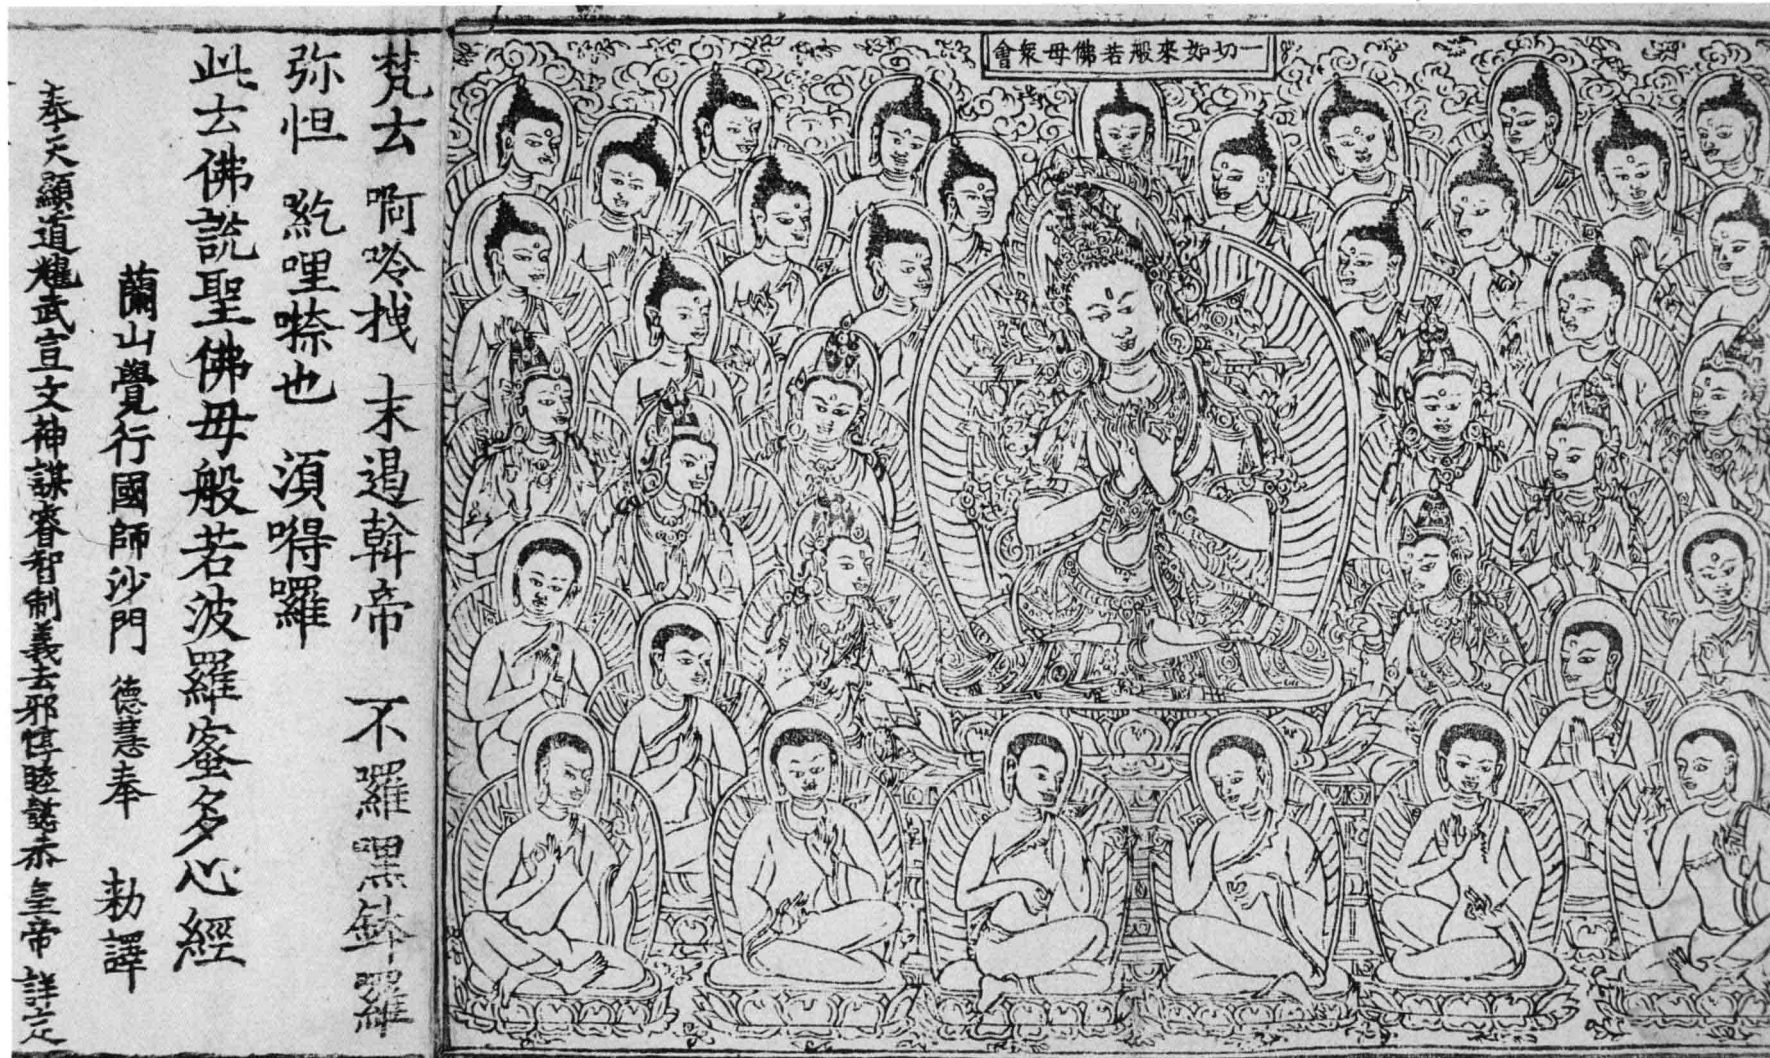 一切如來般若佛母衆會
梵云 啊唥拽 末遏斡帝 不囉嘿鉢囉
弥怛 紇哩捺也 須嘚囉
此云佛說聖佛母般若波羅蜜多心經
蘭山覺行國師沙門 德慧奉 勑譯
奉天顯道耀武宣文神謀睿智制義去邪惇睦懿恭 皇帝 詳定